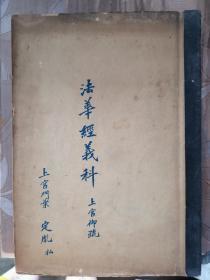 法華經義科
上宮御疏
上宮門業 定胤 私